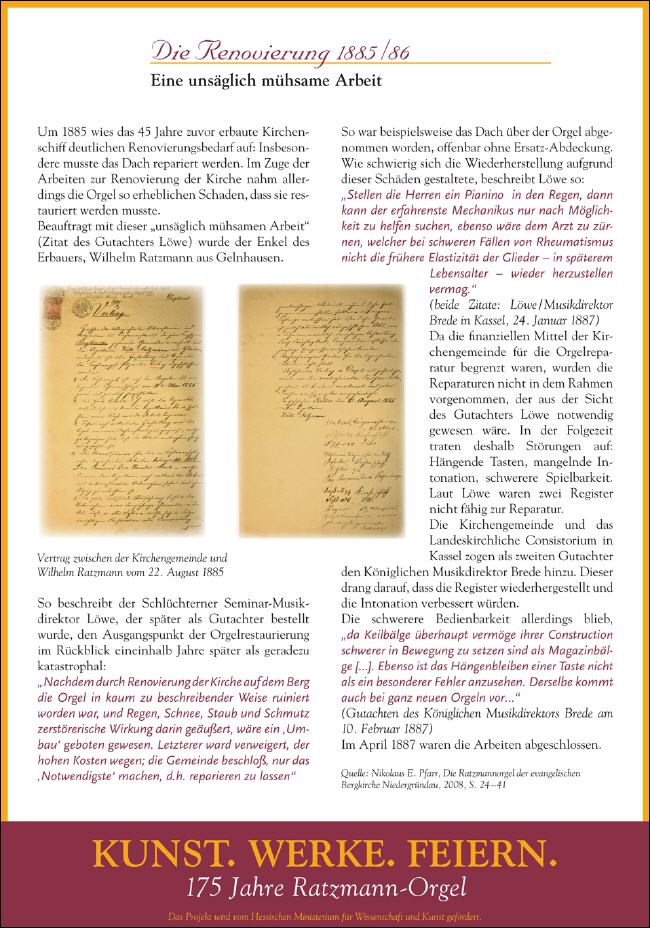 Die Renovierung 1885/86
Eine unsäglich mühsame Arbeit
Um 1885 wies das 45 Jahre zuvor erbaute Kirchen-
schiff deutlichen Renovierungsbedarf auf: Insbeson-
dere musste das Dach repariert werden. Im Zuge der
Arbeiten zur Renovierung der Kirche nahm aller-
dings die Orgel so erheblichen Schaden, dass sie res-
tauriert werden musste.
Beauftragt mit dieser „unsäglich mühsamen Arbeit“
(Zitat des Gutachters Löwe) wurde der Enkel des
Erbauers, Wilhelm Ratzmann aus Gelnhausen.
Vertrag
Vertrag zwischen der Kirchengemeinde und
Wilhelm Ratzmann vom 22. August 1885
So beschreibt der Schlüchterner Seminar-Musik-
direktor Löwe, der später als Gutachter bestellt
wurde, den Ausgangspunkt der Orgelrestaurierung
im Rückblick eineinhalb Jahre später als geradezu
katastrophal:
„Nachdem durch Renovierung der Kirche auf dem Berg
die Orgel in kaum zu beschreibender Weise ruiniert
worden war, und Regen, Schnee, Staub und Schmutz
zerstörerische Wirkung darin geäußert, wäre ein ‚Um-
bau‘ geboten gewesen. Letzterer ward verweigert, der
hohen Kosten wegen; die Gemeinde beschloß, nur das
‚Notwendigste‘ machen, d.h. reparieren zu lassen“
So war beispielsweise das Dach über der Orgel abge-
nommen worden, offenbar ohne Ersatz-Abdeckung.
Wie schwierig sich die Wiederherstellung aufgrund
dieser Schäden gestaltete, beschreibt Löwe so:
„Stellen die Herren ein Pianino in den Regen, dann
kann der erfahrenste Mechanikus nur nach Möglich-
keit zu helfen suchen, ebenso wäre dem Arzt zu zür-
nen, welcher bei schweren Fällen von Rheumatismus
nicht die frühere Elastizität der Glieder – in späterem
Lebensalter – wieder herzustellen
vermag.“
(beide Zitate: Löwe/Musikdirektor
Brede in Kassel, 24. Januar 1887)
Da die finanziellen Mittel der Kir-
chengemeinde für die Orgelrepa-
ratur begrenzt waren, wurden die
Reparaturen nicht in dem Rahmen
vorgenommen, der aus der Sicht
des Gutachters Löwe notwendig
gewesen wäre. In der Folgezeit
traten deshalb Störungen auf:
Hängende Tasten, mangelnde In-
tonation, schwerere Spielbarkeit.
Laut Löwe waren zwei Register
nicht fähig zur Reparatur.
Die Kirchengemeinde und das
Landeskirchliche Consistorium in
Kassel zogen als zweiten Gutachter
den Königlichen Musikdirektor Brede hinzu. Dieser
drang darauf, dass die Register wiederhergestellt und
die Intonation verbessert würden.
Die schwerere Bedienbarkeit allerdings blieb,
„da Keilbälge überhaupt vermöge ihrer Construction
schwerer in Bewegung zu setzen sind als Magazinbäl-
ge [...]. Ebenso ist das Hängenbleiben einer Taste nicht
als ein besonderer Fehler anzusehen. Derselbe kommt
auch bei ganz neuen Orgeln vor...“
(Gutachten des Königlichen Musikdirektors Brede am
10. Februar 1887)
Im April 1887 waren die Arbeiten abgeschlossen.
Quelle: Nikolaus E. Pfarr, Die Ratzmannorgel der evangelischen
Bergkirche Niedergründau, 2008, S. 24–41
KUNST. WERKE. FEIERN.
175 Jahre Ratzmann-Orgel
Das Projekt wird vom Hessischen Ministerium für Wissenschaft und Kunst gefördert.